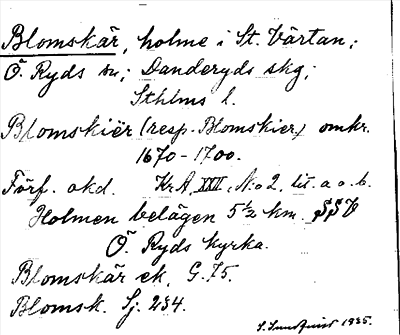 Blomskär, holme i St. Värtan;
Ö. Ryds sn; Danderyds skg;
Sthlms l.
Blomskiër (resp. Blomskier) omkr.
1670-1700.
Förf. okd. Kr.A. XXII, No 2, lit. a o. b.
Holmen belägen 5½ km. SSV
Ö. Ryds kyrka.
Blomskär ek. G. 75.
Blomsk. Sj. 234.
S. Sundquist 1935.